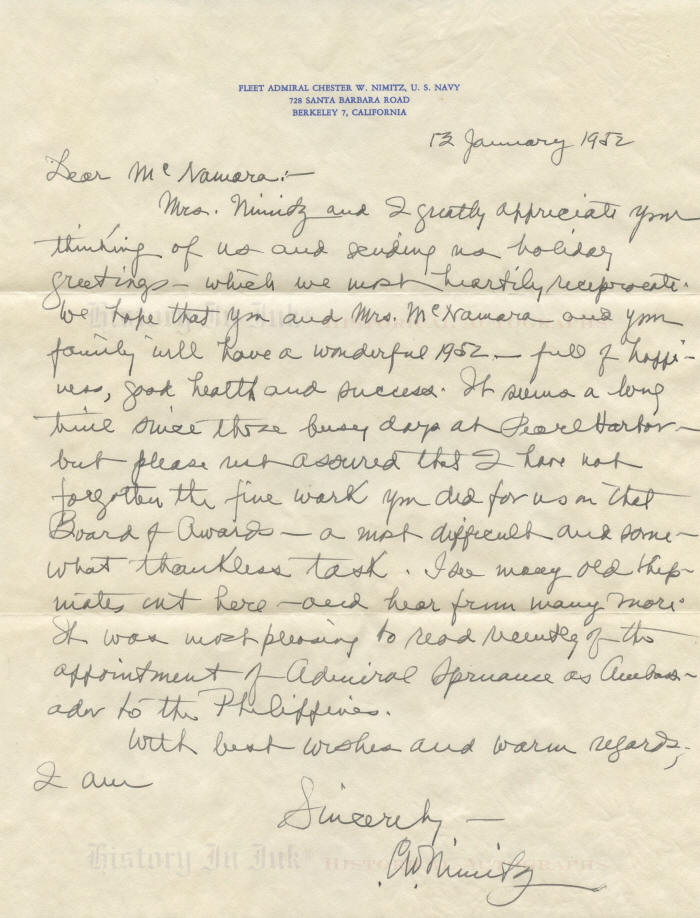 FLEET ADMIRAL CHESTER W. NIMITZ, U. S. NAVY
728 SANTA BARBARA ROAD
BERKELEY 7, CALIFORNIA
January 1952
Dear McNamara:—
Mrs. Nimitz and I greatly appreciate your
thinking of us and sending us holiday
greetings — which we most heartily reciprocate.
We hope that you and Mrs. McNamara and your
family will have a wonderful 1952 — full of happi-
ness, good health and success. It seems a long
time since those busy days at Pearl Harbor —
but please rest assured that I have not
forgotten the fine work you did for us on that
Board of Awards — a most difficult and some-
what thankless task. I see many old ship-
mates out here — and hear from many more.
It was most pleasing to read recently of the
appointment of Admiral Spruance as Ambass-
ador to the Philippines.
With best wishes and warm regards,
I am
Sincerely —
C.W. Nimitz
History In Ink